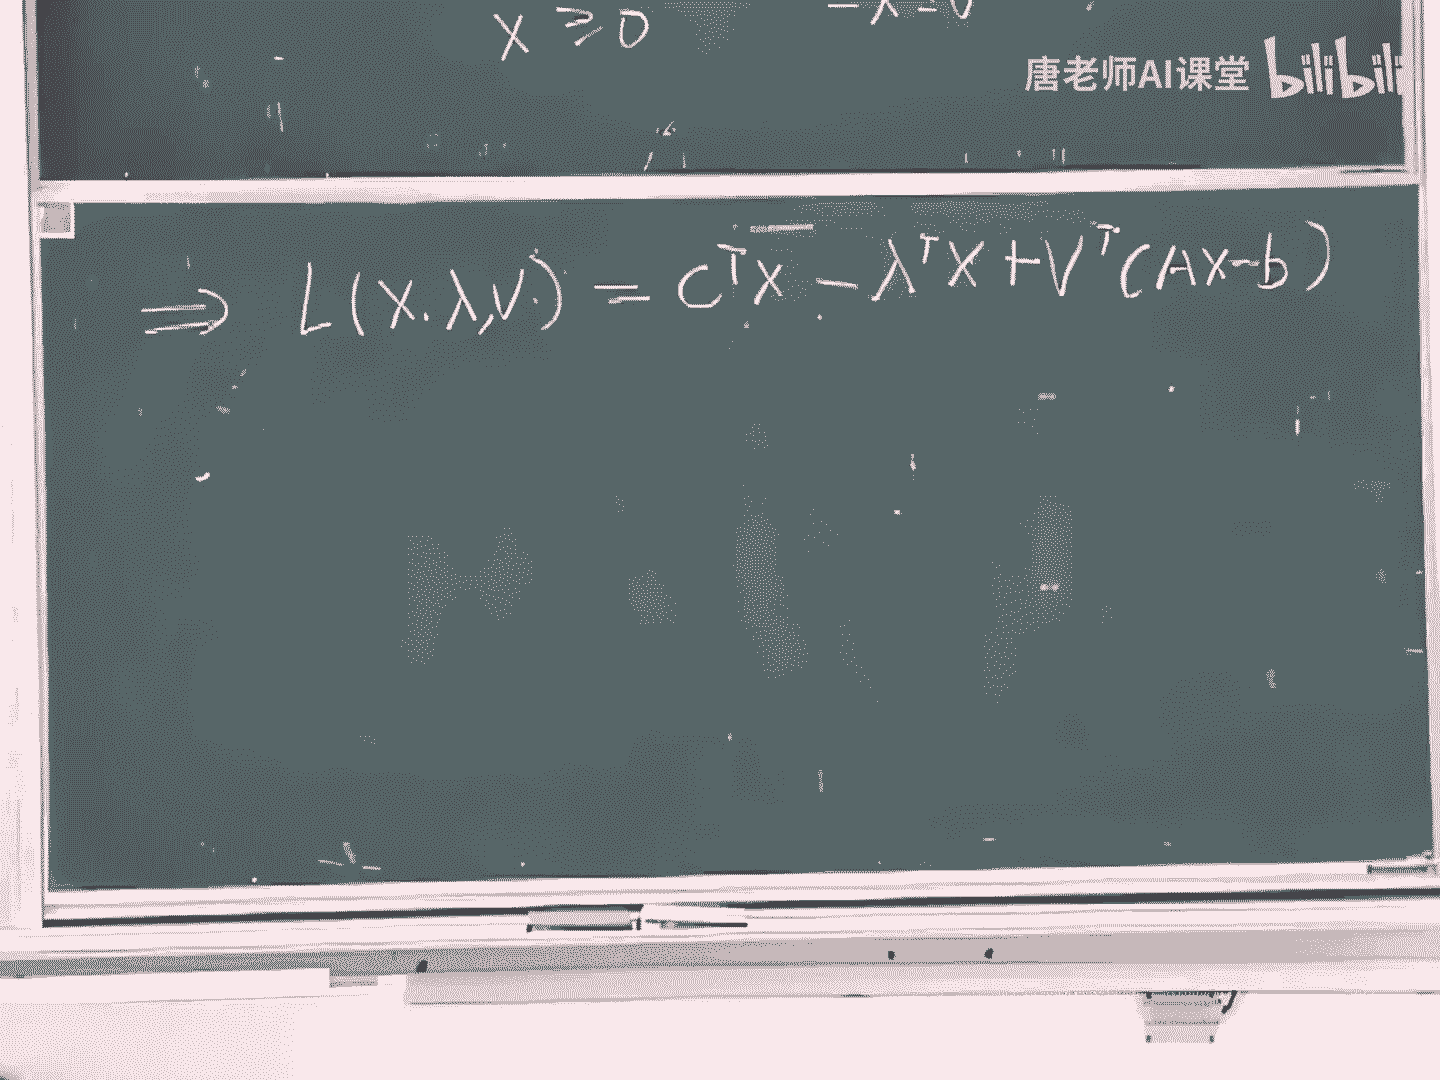 x ≥ 0
唐老师AI课堂 bilibili
⇒ L(x.λ,v) = c^T x - λ^T x + v^T (Ax-b)